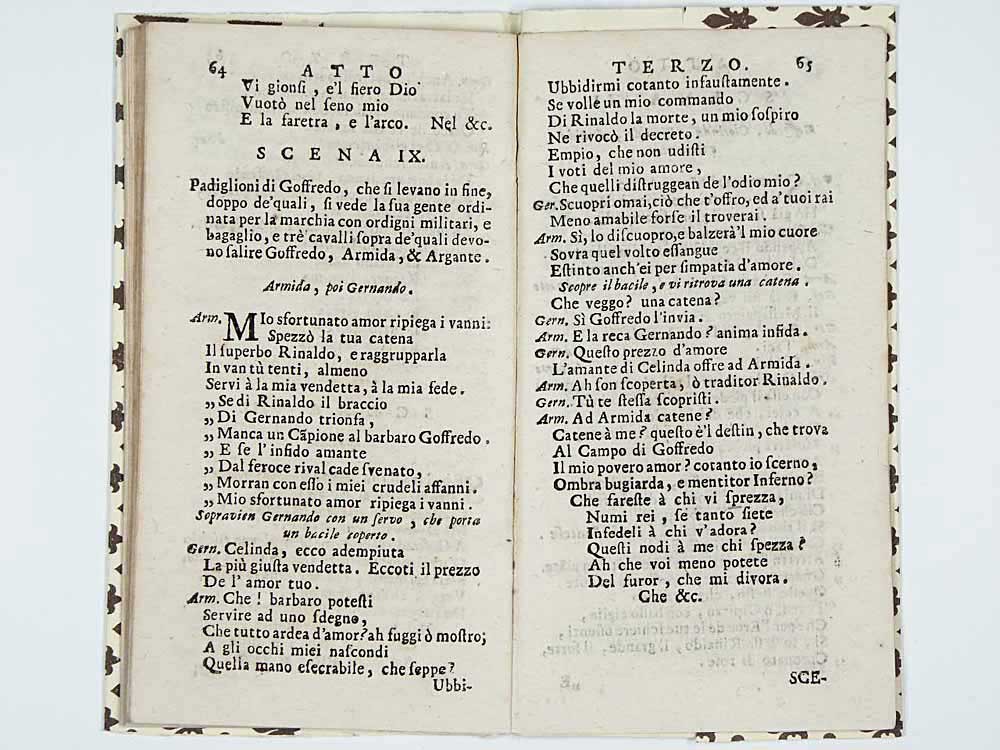 64 ATTO
Vi gionsi, e'l fiero Dio
Vuotò nel ſeno mio
E la faretra, e l'arco. Nel &c.
SCENA IX.
Padiglioni di Goffredo, che ſi levano in fine,
doppo de'quali, ſi vede la ſua gente ordi-
nata per la marchia con ordigni militari, e
bagaglio, e trè cavalli ſopra de'quali devo-
no ſalire Goffredo, Armida, & Argante.
Armida, poi Gernando.
Arm. MIo sfortunato amor ripiega i vanni:
Spezzò la tua catena
Il ſuperbo Rinaldo, e raggrupparla
In van tù tenti, almeno
Servi à la mia vendetta, à la mia fede.
„ Se di Rinaldo il braccio
„ Di Gernando trionfa,
„ Manca un Cãpione al barbaro Goffredo.
„ E ſe l'infido amante
„ Dal feroce rival cade ſvenato,
„ Morran con eſſo i miei crudeli affanni.
„ Mio sfortunato amor ripiega i vanni.
Sopravien Gernando con un ſervo, che porta
un bacile coperto.
Gern. Celinda, ecco adempiuta
La più giuſta vendetta. Eccoti il prezzo
De l'amor tuo.
Arm. Che! barbaro poteſti
Servire ad uno ſdegno,
Che tutto ardea d'amor? ah fuggi ò moſtro;
A gli occhi miei naſcondi
Quella mano eſecrabile, che ſeppe?
Ubbi-
TERZO. 65
Ubbidirmi cotanto infauſtamente.
Se volle un mio commando
Di Rinaldo la morte, un mio ſoſpiro
Ne rivocò il decreto.
Empio, che non udiſti
I voti del mio amore,
Che quelli diſtruggean de l'odio mio?
Ger. Scuopri omai, ciò che t'offro, ed a' tuoi rai
Meno amabile forſe il troverai.
Arm. Sì, lo diſcuopro, e balzerà'l mio cuore
Sovra quel volto eſſangue
Eſtinto anch'ei per ſimpatia d'amore.
Scopre il bacile, e vi ritrova una catena.
Che veggo? una catena?
Gern. Sì Goffredo l'invia.
Arm. E la reca Gernando? anima infida.
Gern. Queſto prezzo d'amore
L'amante di Celinda offre ad Armida.
Arm. Ah ſon ſcoperta, ò traditor Rinaldo.
Gern. Tù te ſteſſa ſcopriſti.
Arm. Ad Armida catene?
Catene à me? queſto è'l deſtin, che trova
Al Campo di Goffredo
Il mio povero amor? cotanto io ſcerno,
Ombra bugiarda, e mentitor Inferno?
Che fareſte à chi vi ſprezza,
Numi rei, ſe tanto ſiete
Infedeli à chi v'adora?
Queſti nodi à me chi ſpezza?
Ah che voi meno potete
Del furor, che mi divora.
Che &c.
SCE-